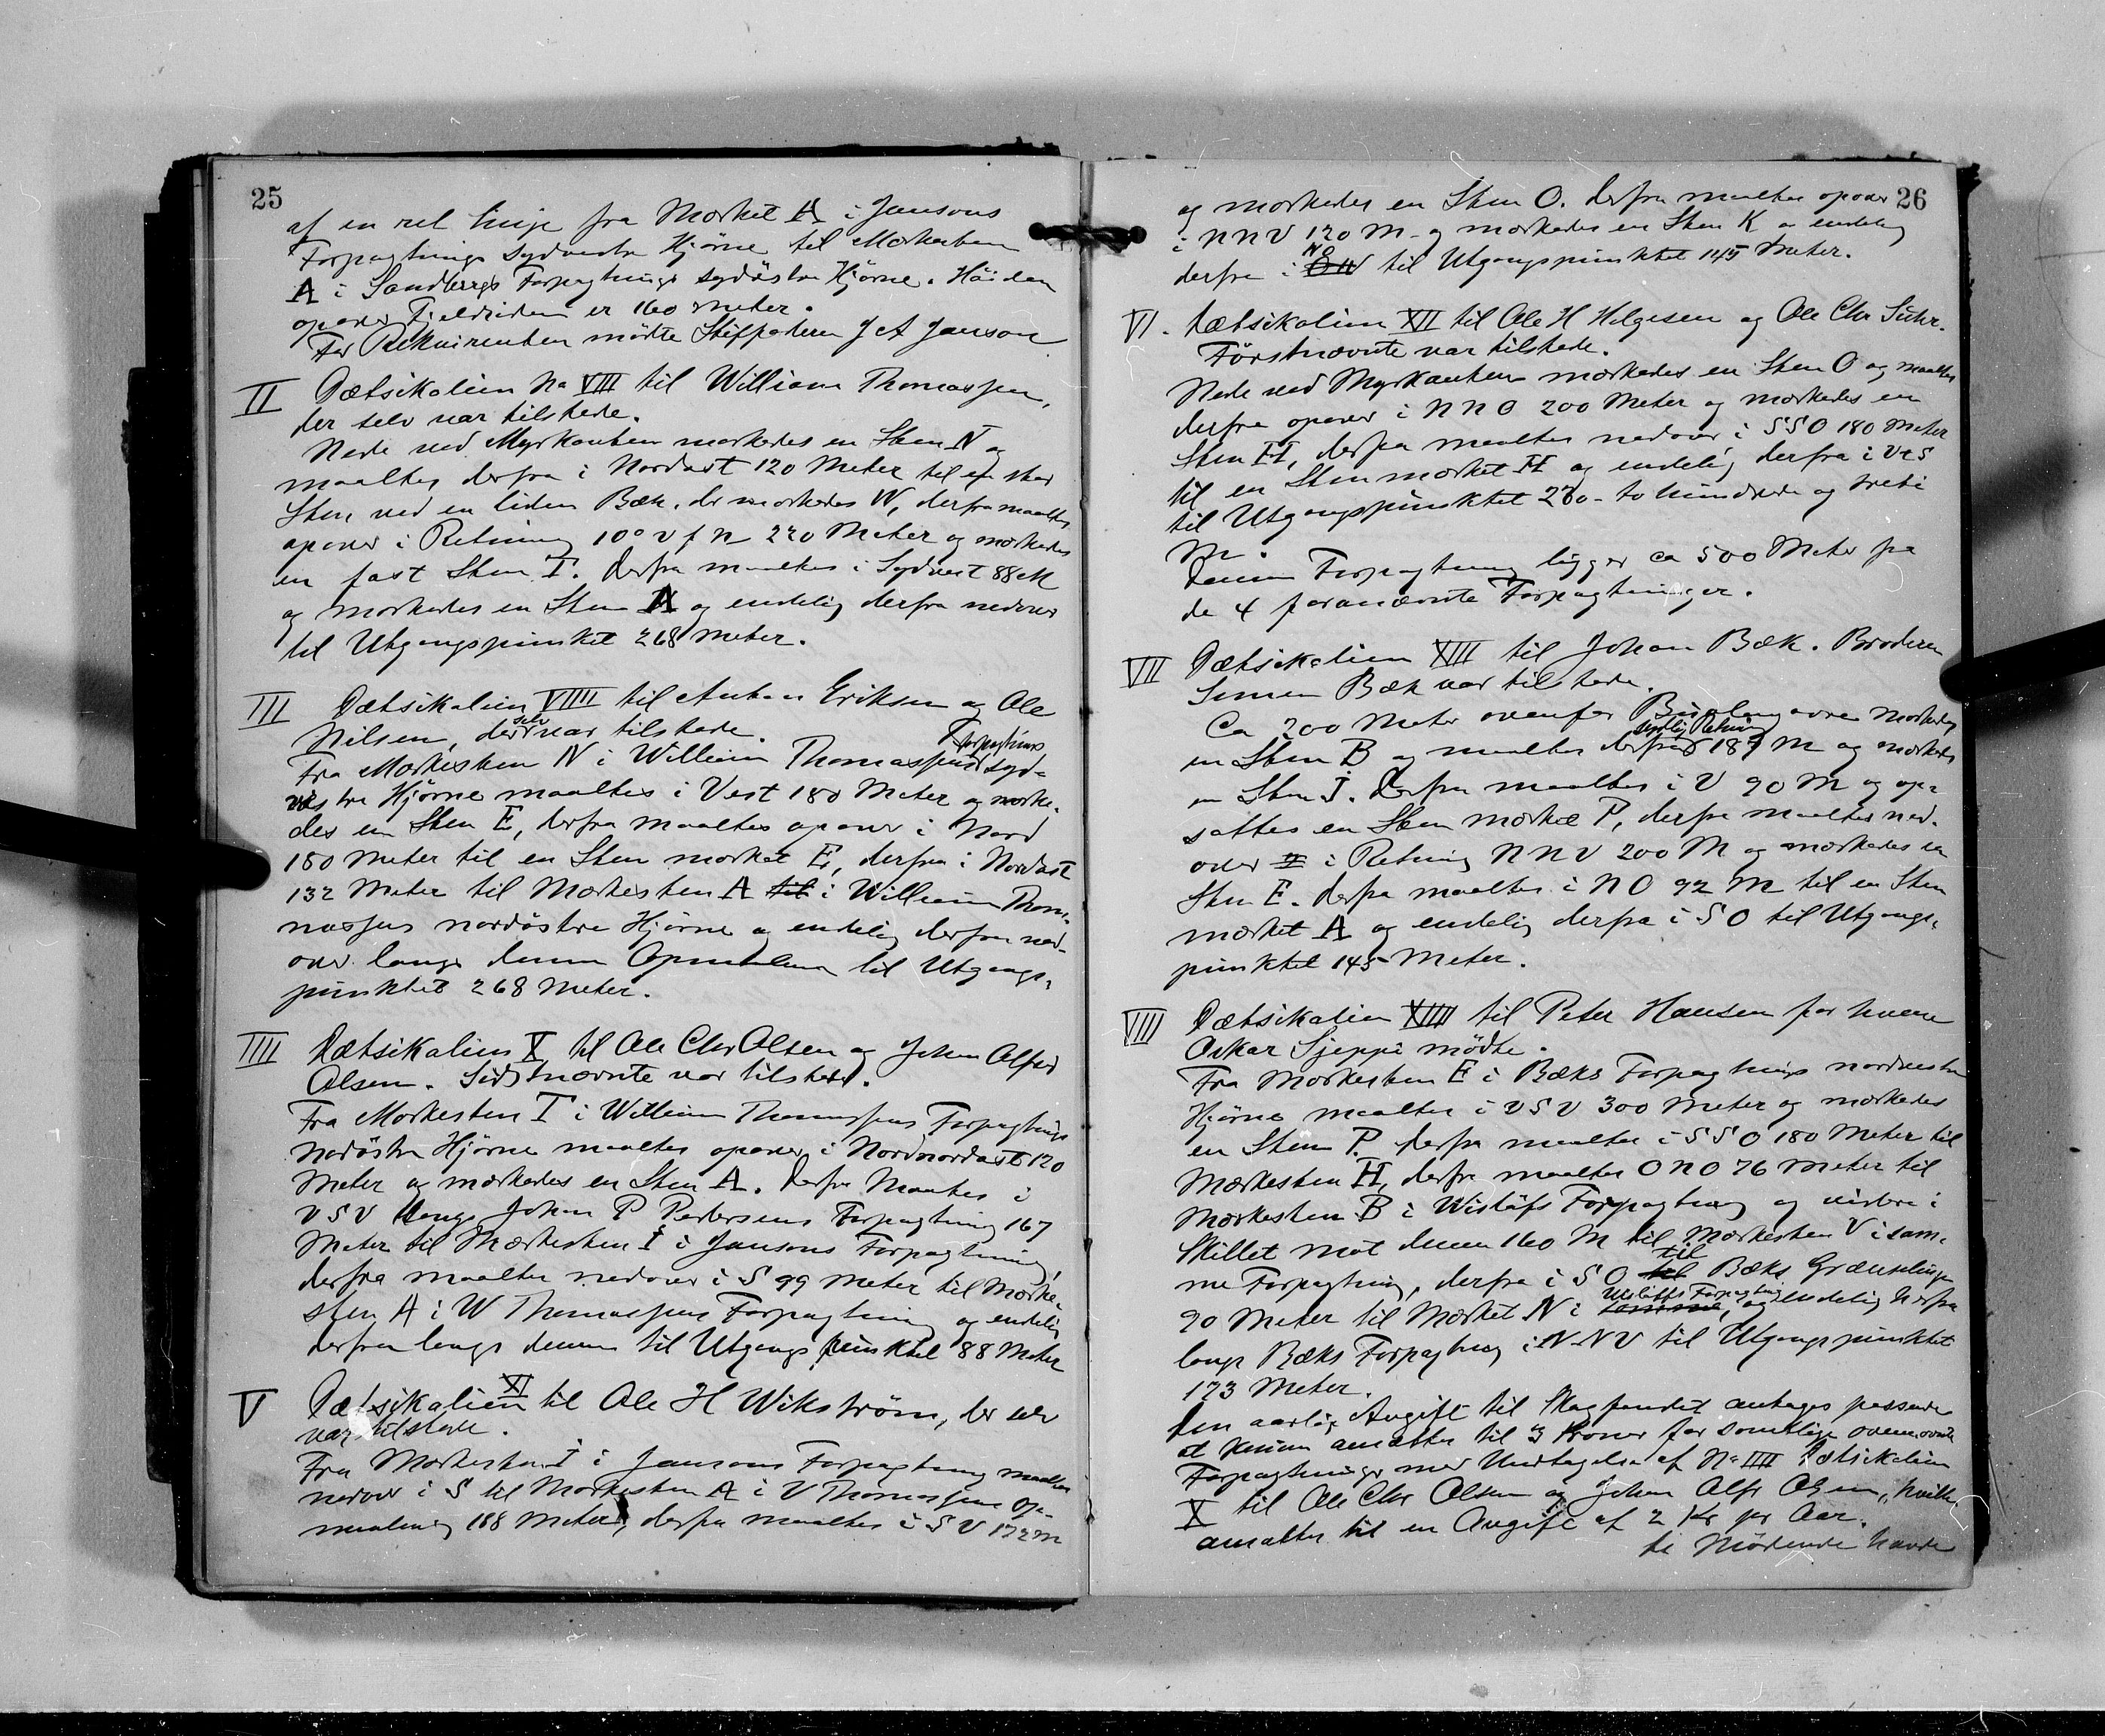 25
af en ret linje fra Mærket A i Jansons
Forpagtnings sydvestre Hjørne til Mærkesten
A i Sandbergs Forpagtnings sydöstre Hjörne. Höiden
opover Fjeldsiden er 160 meter.
For Rekvirenten mödte Skipperen J A Janson
II Dætsikalien No VIII til William Thomassen,
der selv var tilstede.
Nede ved Myrkanten mærkedes en Sten N og
maaltes derfra i Nordost 120 Meter til en stor
Sten ved en liden Bæk, der mærkedes W, derfra maaltes
opover i Retning 10° v f n 220 Meter og mærkedes
en fast Sten T. Derfra maaltes i Sydvest 88 M
og mærkedes en Sten A og endelig derfra nedover
til Utgangspunket 268 meter.
III Dætsikalien VIIII til Anton Eriksen og Ole
Nilsen, der selv var tilstede.
Fra Mærkesten N i William Thomassens Forpagtnings syd-
vestre Hjørne maaltes i Vest 180 Meter og mærke-
des en Sten E, derfra maaltes opover i Nord
180 meter til en Sten mærket E, derfra i Nordost
132 Meter til Mærkesten A til i William Thom-
massens nordöstre Hjörne og endelig derfra ned-
over langs denne Opmaaling til Utgangs-
punktet 268 Meter.
IIII Dætsikalien X til Ole Chr Olsen og Johan Alfred
Olsen. Sidstnævnte var tilstede.
Fra Mærkesten T i William Thomassens Forpagtnings
nordöstre Hjörne maaltes opover i Nordnordost 120
Meter og mærkedes en Sten A. Derfra Maaltes i
V S V langs Johan P Pedersens Forpagtning 167
Meter til Mærkesten I i Jansons Forpagtning,
derfra maaltes nedover i S 99 meter til Mærke-
sten A i W Thomassens Forpagtning og endelig
derfra langs denne til Utgangspunktet 88 Meter
V Dætsikalien XI til Ole H Wikström, der selv
var tilstede.
Fra Mærkesten I i Jansons Forpagtning maaltes
nedover i S til Mærkesten A i V Thomassens Op-
maaling 188 Meter, derfra maaltes i S V 172 m
26
og mærkedes en Sten O. Derfra maaltes opover
i N N V 120 M og mærkedes en Sten K og endelig
derfra i NO til Utgangspunktet 145 Meter.
VI. Dætsikalien XII til Ole H Helgesen og Ole Chr Suhr.
Førstnævnte var tilstede.
Nede ved Myrkanten mærkedes en Sten O og maaltes
derfra opover i N N O 200 Meter og mærkedes en
Sten H, derfra maaltes nedover i S S O 180 Meter
til en Sten mærket H og endelig derfra i V t S
til Utgangspunktet 230 - to hundrede og treti
m.
Denne Forpagtning ligger ca 500 Meter fra
de 4 forannævnte Forpagtninger.
VII Dætsikalien XIII til Johan Bæk. Broderen
Simon Bæk var tilstede.
Ca 200 Meter ovenfor mærkedes
en Sten B og maaltes derfra i sydlig Retning 187 M og mærkedes
en Sten I. Derfra maaltes i V 90 M og op-
sattes en Sten mærket P, derfra maaltes ned-
over i Retning N N V 200 M og mærkedes en
Sten E. Derfra maaltes i N O 92 M til en Sten
mærket A og endelig derfra i S O til Utgangs-
punktet 145 Meter.
VIII Dætsikalien XIIII til Peter Hansen for hvem
Oskar Sjeppi mödte.
Fra Mærkesten E i Bæks Forpagtnings nordvestre
Hjörne maaltes i V S V 300 Meter og mærkedes
en Sten P. Derfra maaltes i S S O 180 Meter til
Mærkesten H, derfra maaltes O N O 76 Meter til
Mærkesten B i Wislöfs Forpagtning og videre i
Skillet mot denne 160 M til Mærkesten V i sam-
me Forpagtning, derfra i S O til Bæks Grænselinje
90 Meter til Mærket N i Wislöffs Forpagtning, og endelig herfra
langs Bæks Forpagtning i N N V til Utgangspunktet
173 Meter.
Den aarlige Avgift til Skogfondet antages passende
at kunne ansættes til 3 Kroner for samtlige ovennævnte
Forpagtninger med Undtagelse af No IIII Dætsikalien
X til Ole Chr Olsen og Johan Alfr Olsen, hvilke
ansattes til en Avgift af 2 Kr pr Aar.
De Mödende havde